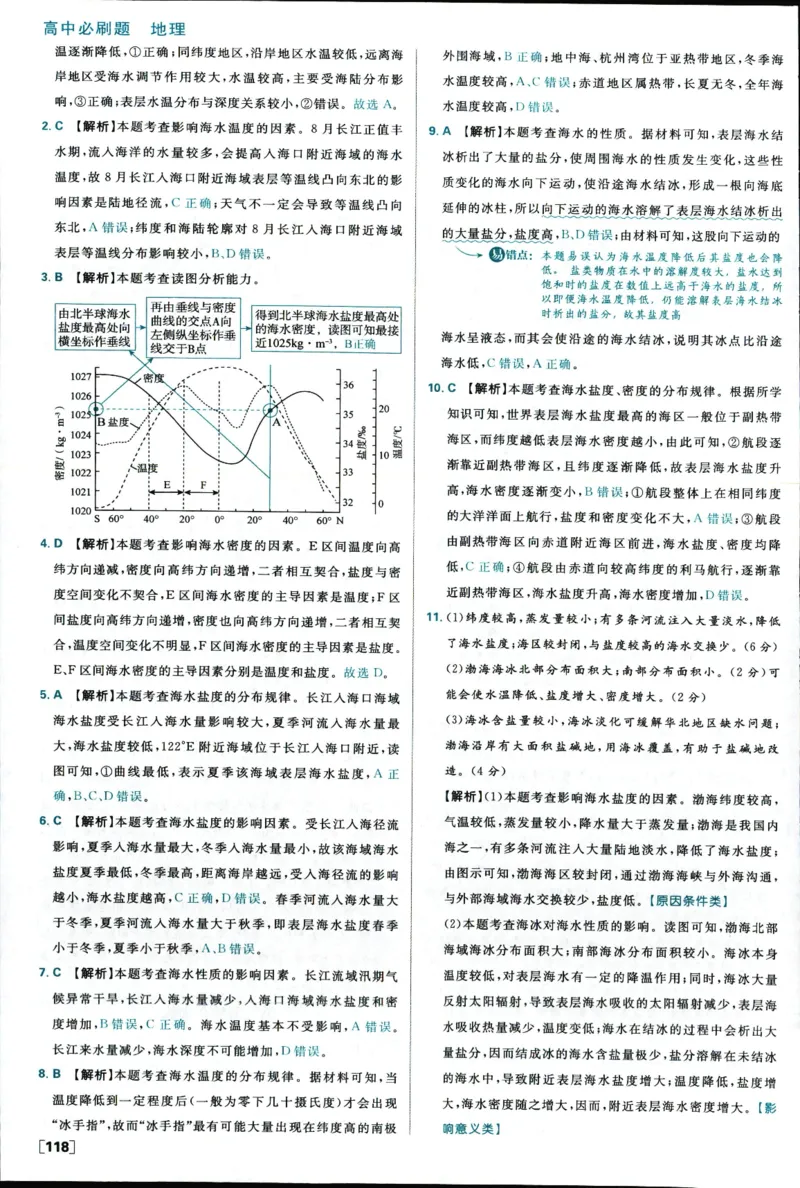 高中必刷题 地理
温逐渐降低,①正确;同纬度地区,沿岸地区水温较低,远离海
岸地区受海水调节作用较大,水温较高,主要受海陆分布影
响,③正确;表层水温分布与深度关系较小,②错误。故选 A。
2. C 【解析】本题考查影响海水温度的因素。8 月长江正值丰
水期,流入海洋的水量较多,会提高入海口附近海域的海水
温度,故 8 月长江入海口附近海域表层等温线凸向东北的影
响因素是陆地径流,C 正确;天气不一定会导致等温线凸向
东北,A 错误;纬度和海陆轮廓对 8 月长江入海口附近海域
表层等温线分布影响较小,B、D 错误。
3. B 【解析】本题考查读图分析能力。
由北半球海水
盐度最高处向
横坐标作垂线
再由垂线与密度
曲线的交点A向
左侧纵坐标作垂
线交于B点
得到北半球海水盐度最高处
的海水密度，读图可知最接
近1025kg·m⁻³，B正确
密度/(kg·m⁻³)
1027
1026
1025
1024
1023
1022
1021
1020
密度
B 盐度
温度
E
F
A
S 60° 40° 20° 0° 20° 40° 60° N
36
35
34
33
32
盐度/‰
20
10
0
温度/℃
4. D 【解析】本题考查影响海水密度的因素。E 区间温度向高
纬方向递减,密度向高纬方向递增,二者相互契合,盐度与密
度空间变化不契合,E 区间海水密度的主导因素是温度;F 区
间盐度向高纬方向递增,密度也向高纬方向递增,二者相互契
合,温度空间变化不明显,F 区间海水密度的主导因素是盐度。
E、F 区间海水密度的主导因素分别是温度和盐度。故选 D。
5. A 【解析】本题考查海水盐度的分布规律。长江入海口海域
海水盐度受长江入海水量影响较大,夏季河流入海水量最
大,海水盐度较低,122°E 附近海域位于长江入海口附近,读
图可知,①曲线最低,表示夏季该海域表层海水盐度,A 正
确,B、C、D 错误。
6. C 【解析】本题考查海水盐度的影响因素。受长江入海径流
影响,夏季入海水量最大,冬季入海水量最小,故该海域海水
盐度夏季最低,冬季最高,距离海岸越远,受入海径流的影响
越小,海水盐度越高,C 正确,D 错误。春季河流入海水量大
于冬季,夏季河流入海水量大于秋季,即表层海水盐度春季
小于冬季,夏季小于秋季,A、B 错误。
7. C 【解析】本题考查海水性质的影响因素。长江流域汛期气
候异常干旱,长江入海水量减少,入海口海域海水盐度和密
度增加,B 错误,C 正确。海水温度基本不受影响,A 错误。
长江来水量减少,海水深度不可能增加,D 错误。
8. B 【解析】本题考查海水温度的分布规律。据材料可知,当
温度降低到一定程度后(一般为零下几十摄氏度)才会出现
“冰手指”,故而“冰手指”最有可能大量出现在纬度高的南极
[118]
外围海域,B 正确;地中海、杭州湾位于亚热带地区,冬季海
水温度较高,A、C 错误;赤道地区属热带,长夏无冬,全年海
水温度较高,D 错误。
9. A 【解析】本题考查海水的性质。据材料可知,表层海水结
冰析出了大量的盐分,使周围海水的性质发生变化,这些性
质变化的海水向下运动,使沿途海水结冰,形成一根向海底
延伸的冰柱,所以向下运动的海水溶解了表层海水结冰析出
的大量盐分,盐度高,B、D 错误;由材料可知,这股向下运动的
易错点: 本题易误认为海水温度降低后其盐度也会降
低。 盐类物质在水中的溶解度较大, 盐水达到
饱和时的盐度在数值上远高于海水的盐度, 所
以即便海水温度降低, 仍能溶解表层海水结冰
时析出的盐分, 故其盐度高
海水呈液态,而其会使沿途的海水结冰,说明其冰点比沿途
海水低,C 错误,A 正确。
10. C 【解析】本题考查海水盐度、密度的分布规律。根据所学
知识可知,世界表层海水盐度最高的海区一般位于副热带
海区,而纬度越低表层海水密度越小,由此可知,②航段逐
渐靠近副热带海区,且纬度逐渐降低,故表层海水盐度升
高,海水密度逐渐变小,B 错误;①航段整体上在相同纬度
的大洋洋面上航行,盐度和密度变化不大,A 错误;③航段
由副热带海区向赤道附近海区前进,海水盐度、密度均降
低,C 正确;④航段由赤道向较高纬度的利马航行,逐渐靠
近副热带海区,海水盐度升高,海水密度增加,D 错误。
11. (1)纬度较高,蒸发量较小;有多条河流注入大量淡水,降低
了海水盐度;海区较封闭,与盐度较高的海水交换少。(6 分)
(2)渤海海冰北部分布面积大;南部分布面积小。(2 分)可
能会使水温降低、盐度增大、密度增大。(2 分)
(3)海冰含盐量较小,海冰淡化可缓解华北地区缺水问题;
渤海沿岸有大面积盐碱地,用海冰覆盖,有助于盐碱地改
造。(4 分)
【解析】(1)本题考查影响海水盐度的因素。渤海纬度较高,
气温较低,蒸发量较小,降水量大于蒸发量;渤海是我国内
海之一,有多条河流注入大量陆地淡水,降低了海水盐度;
由图示可知,渤海海区较封闭,通过渤海海峡与外海沟通,
与外部海域海水交换较少,盐度低。【原因条件类】
(2)本题考查海冰对海水性质的影响。读图可知,渤海北部
海域海冰分布面积大;南部海冰分布面积较小。海冰本身
温度较低,对表层海水有一定的降温作用;同时,海冰大量
反射太阳辐射,导致表层海水吸收的太阳辐射减少,表层海
水吸收热量减少,温度变低;海水在结冰的过程中会析出大
量盐分,因而结成冰的海水含盐量极少,盐分溶解在未结冰
的海水中,导致附近表层海水盐度增大;温度降低,盐度增
大,海水密度随之增大,因而,附近表层海水密度增大。【影
响意义类】